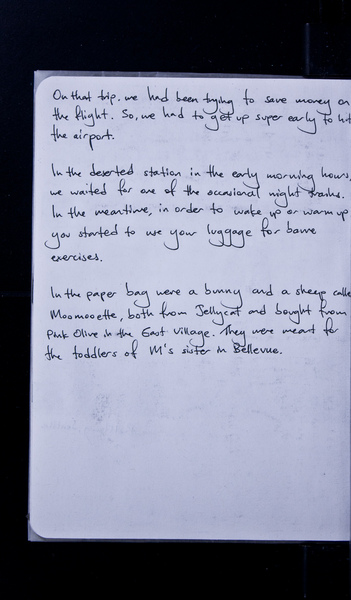 On that trip. we had been trying to save money on
the flight. So, we had to get up super early to hit
the airport.
In the deserted station in the early morning hours,
we waited for one of the occasional night trains.
In the meantime, in order to wake up or warm up
you started to use your luggage for barre
exercises.
In the paper bag were a bunny and a sheep calle
Moomooette, both from Jellycat and bought from
Pink Olive in the East Village. They were meant for
the toddlers of M's sister in Bellevue.